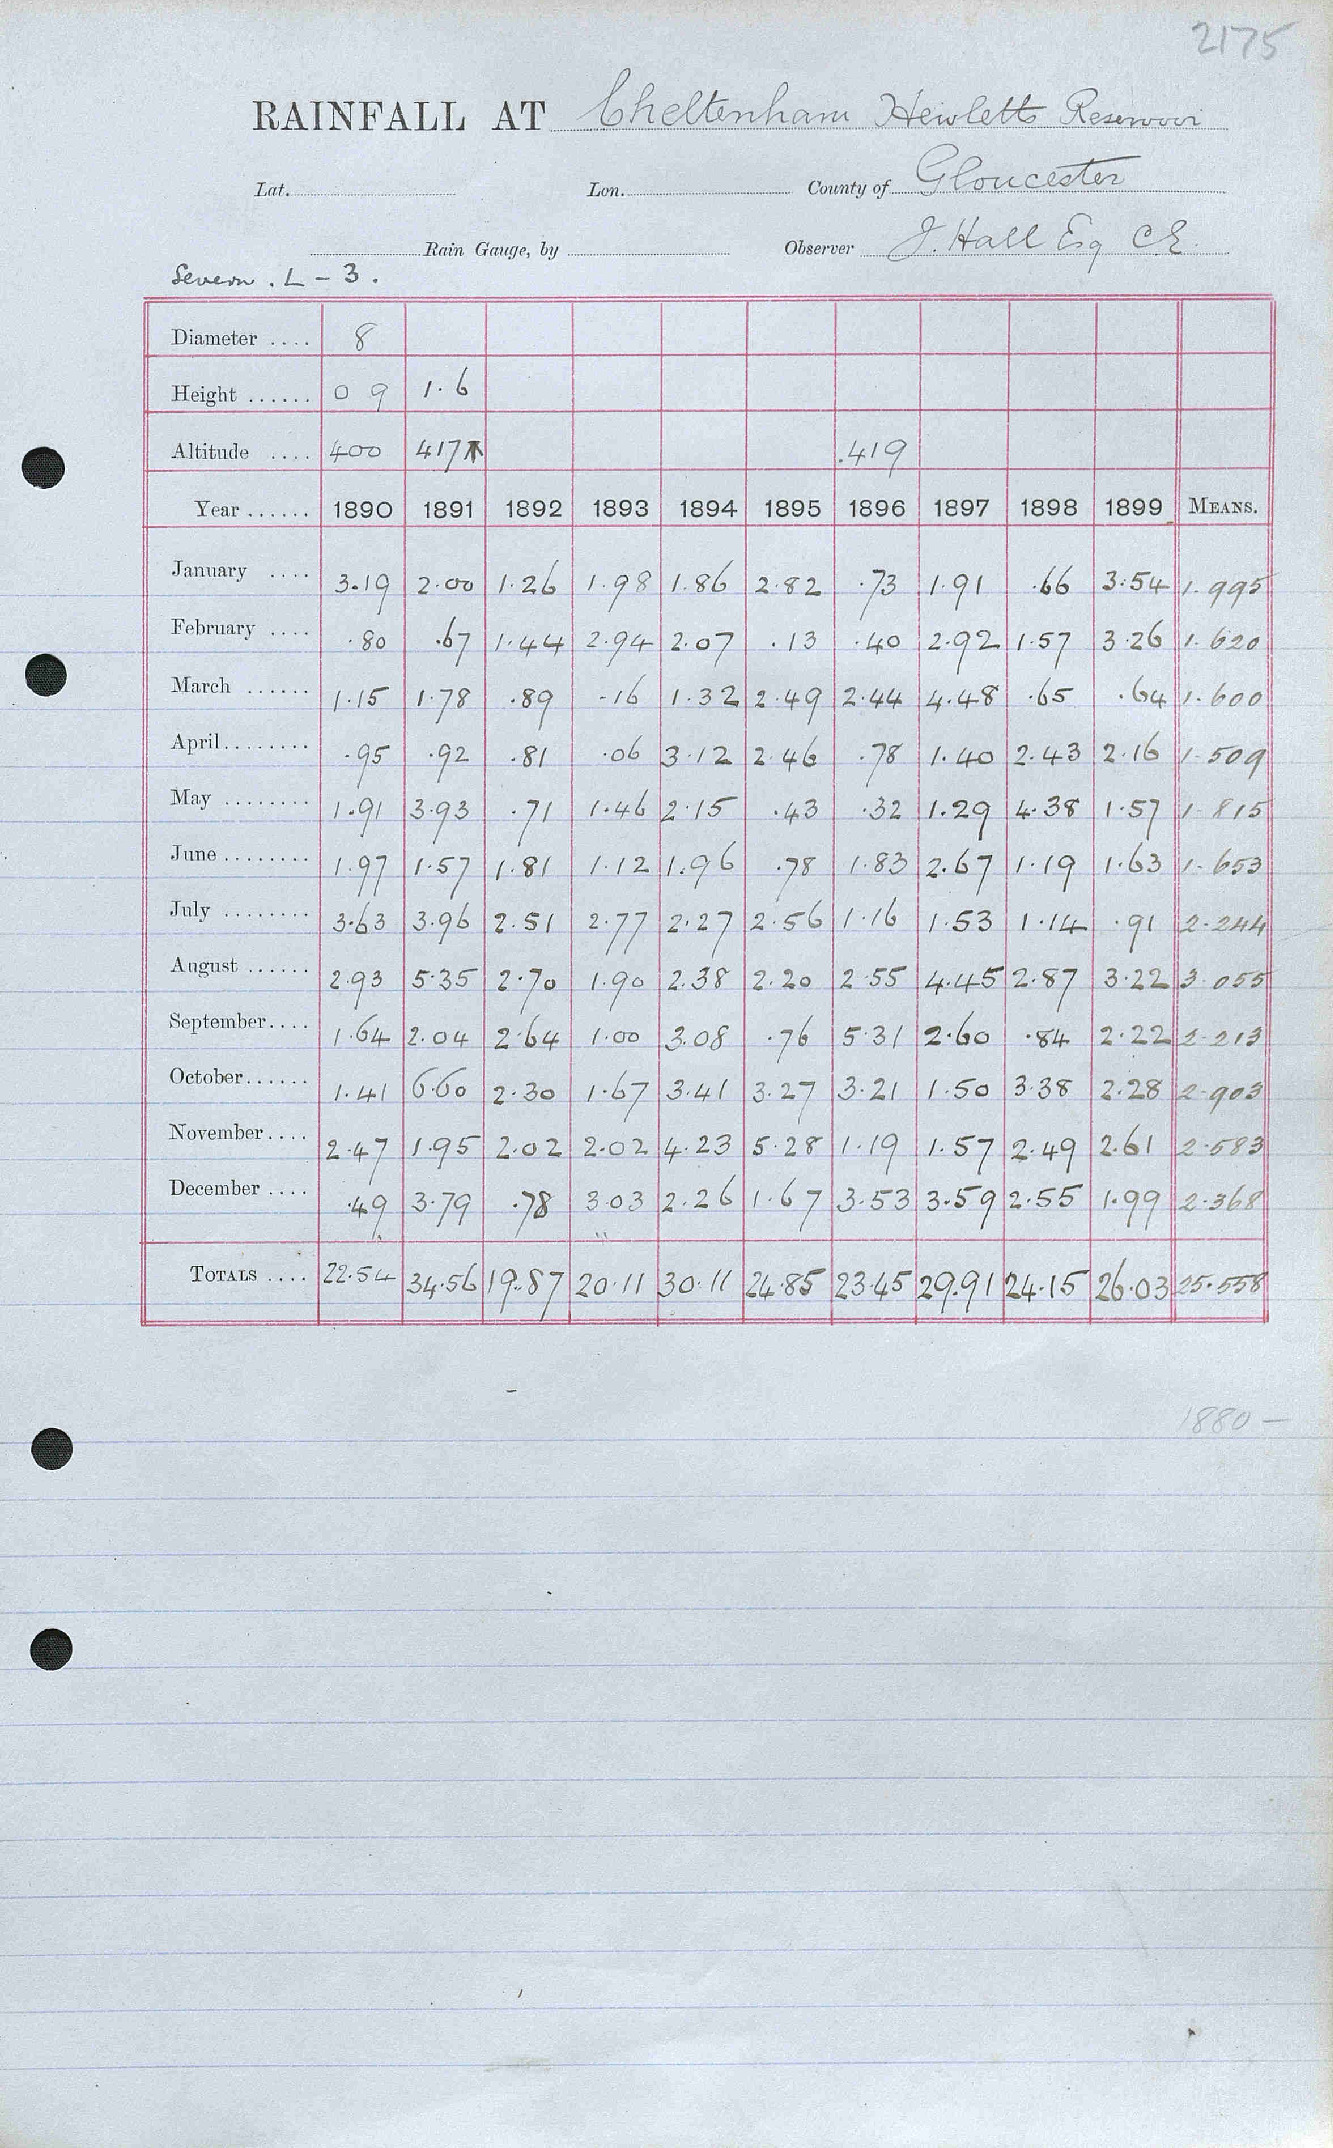 2175
RAINFALL AT Cheltenham Hewletts Reservoir
Lat. Lon. County of Gloucester
Rain Gauge, by Observer J. Hall Esq C.E
Severn . L - 3 .
Diameter .... 8
Height ...... 0 9 1.6
Altitude .... 400 417 .419
Year ...... 1890 1891 1892 1893 1894 1895 1896 1897 1898 1899 MEANS.
January .... 3.19 2.00 1.26 1.98 1.86 2.82 .73 1.91 .66 3.54 1.995
February .... .80 .67 1.44 2.94 2.07 .13 .40 2.92 1.57 3.26 1.620
March ...... 1.15 1.78 .89 .16 1.32 2.49 2.44 4.48 .65 .64 1.600
April ........ .95 .92 .81 .06 3.12 2.46 .78 1.40 2.43 2.16 1.509
May ........ 1.91 3.93 .71 1.46 2.15 .43 .32 1.29 4.38 1.57 1.815
June ........ 1.97 1.57 1.81 1.12 1.96 .78 1.83 2.67 1.19 1.63 1.653
July ........ 3.63 3.96 2.51 2.77 2.27 2.56 1.16 1.53 1.14 .91 2.244
August ...... 2.93 5.35 2.70 1.90 2.38 2.20 2.55 4.45 2.87 3.22 3.055
September.... 1.64 2.04 2.64 1.00 3.08 .76 5.31 2.60 .84 2.22 2.213
October...... 1.41 6.60 2.30 1.67 3.41 3.27 3.21 1.50 3.38 2.28 2.903
November.... 2.47 1.95 2.02 2.02 4.23 5.28 1.19 1.57 2.49 2.61 2.583
December .... .49 3.79 .78 3.03 2.26 1.67 3.53 3.59 2.55 1.99 2.368
TOTALS .... 22.54 34.56 19.87 20.11 30.11 24.85 23.45 29.91 24.15 26.03 25.558
1880 —